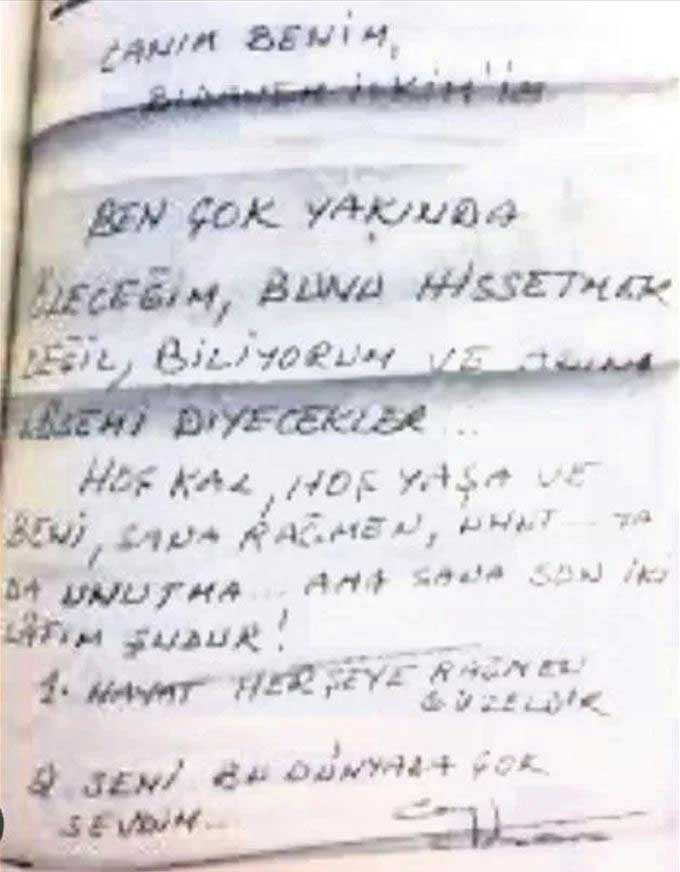 CANIM BENİM,
BİDANEM İLKİM'İM
BEN ÇOK YAKINDA
ÖLECEĞİM, BUNU HİSSETMEK
DEĞİL, BİLİYORUM VE ADINA
LÖSEMİ DİYECEKLER...
HOŞ KAL, HOŞ YAŞA VE
BENİ, SANA RAĞMEN, UNUT... YA
DA UNUTMA... AMA SANA SON İKİ
LÂFIM ŞUDUR!
1. HAYAT HERŞEYE RAĞMEN
GÜZELDİR
2 SENİ BU DÜNYADA ÇOK
SEVDİM...